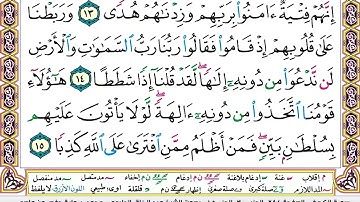 إِنَّهُمْ فِتْيَةٌ ءَامَنُوا۟ بِرَبِّهِمْ وَزِدْنَٰهُمْ هُدًى ١٣ وَرَبَطْنَا
عَلَىٰ قُلُوبِهِمْ إِذْ قَامُوا۟ فَقَالُوا۟ رَبُّنَا رَبُّ ٱلسَّمَٰوَٰتِ وَٱلْأَرْضِ
لَن نَّدْعُوَا۟ مِن دُونِهِۦٓ إِلَٰهًا ۖ لَّقَدْ قُلْنَآ إِذًا شَطَطًا ١٤ هَٰٓؤُلَآءِ
قَوْمُنَا ٱتَّخَذُوا۟ مِن دُونِهِۦٓ ءَالِهَةً ۖ لَّوْلَا يَأْتُونَ عَلَيْهِم
بِسُلْطَٰنٍۭ بَيِّنٍ ۖ فَمَنْ أَظْلَمُ مِمَّنِ ٱفْتَرَىٰ عَلَى ٱللَّهِ كَذِبًا ١٥